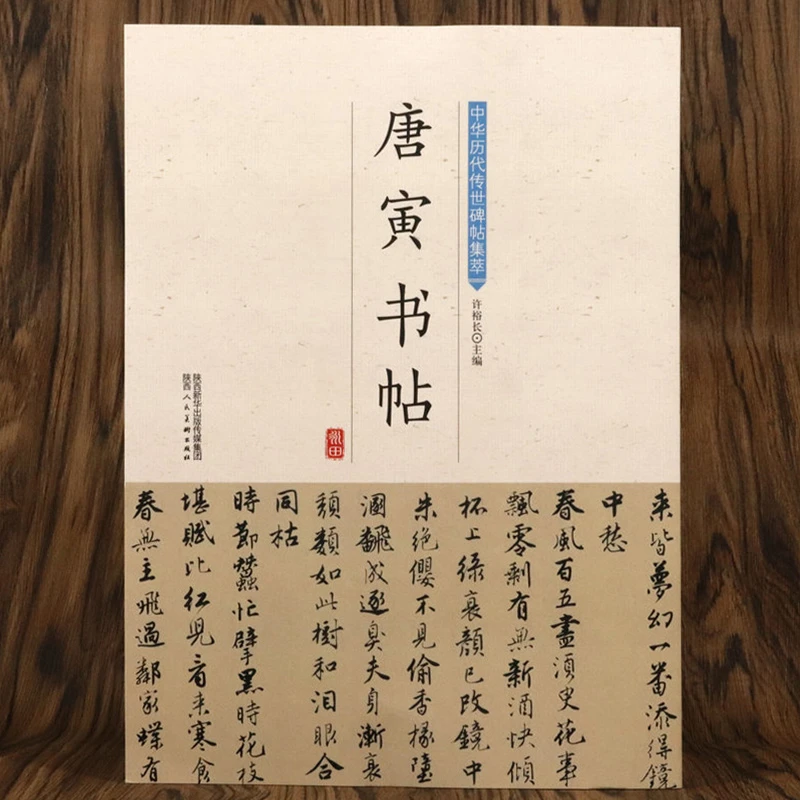 中华历代传世碑帖集萃
许裕长⊙主编
唐寅书帖
陕西新华出版传媒集团
陕西人民美术出版社
来皆夢幻一番添得鏡
中愁
春風百五盡須臾花事
飄零剩有無新酒快傾
杯上緑衰顔已改鏡中
朱絶纓不見偷香掾墮
溷飜成逐臭夫身漸衰
頹類如此樹和泪眼合
同枯
時節蠶忙擘黑時花枝
堪賦比紅兒看来寒食
春無主飛過鄰家蝶有